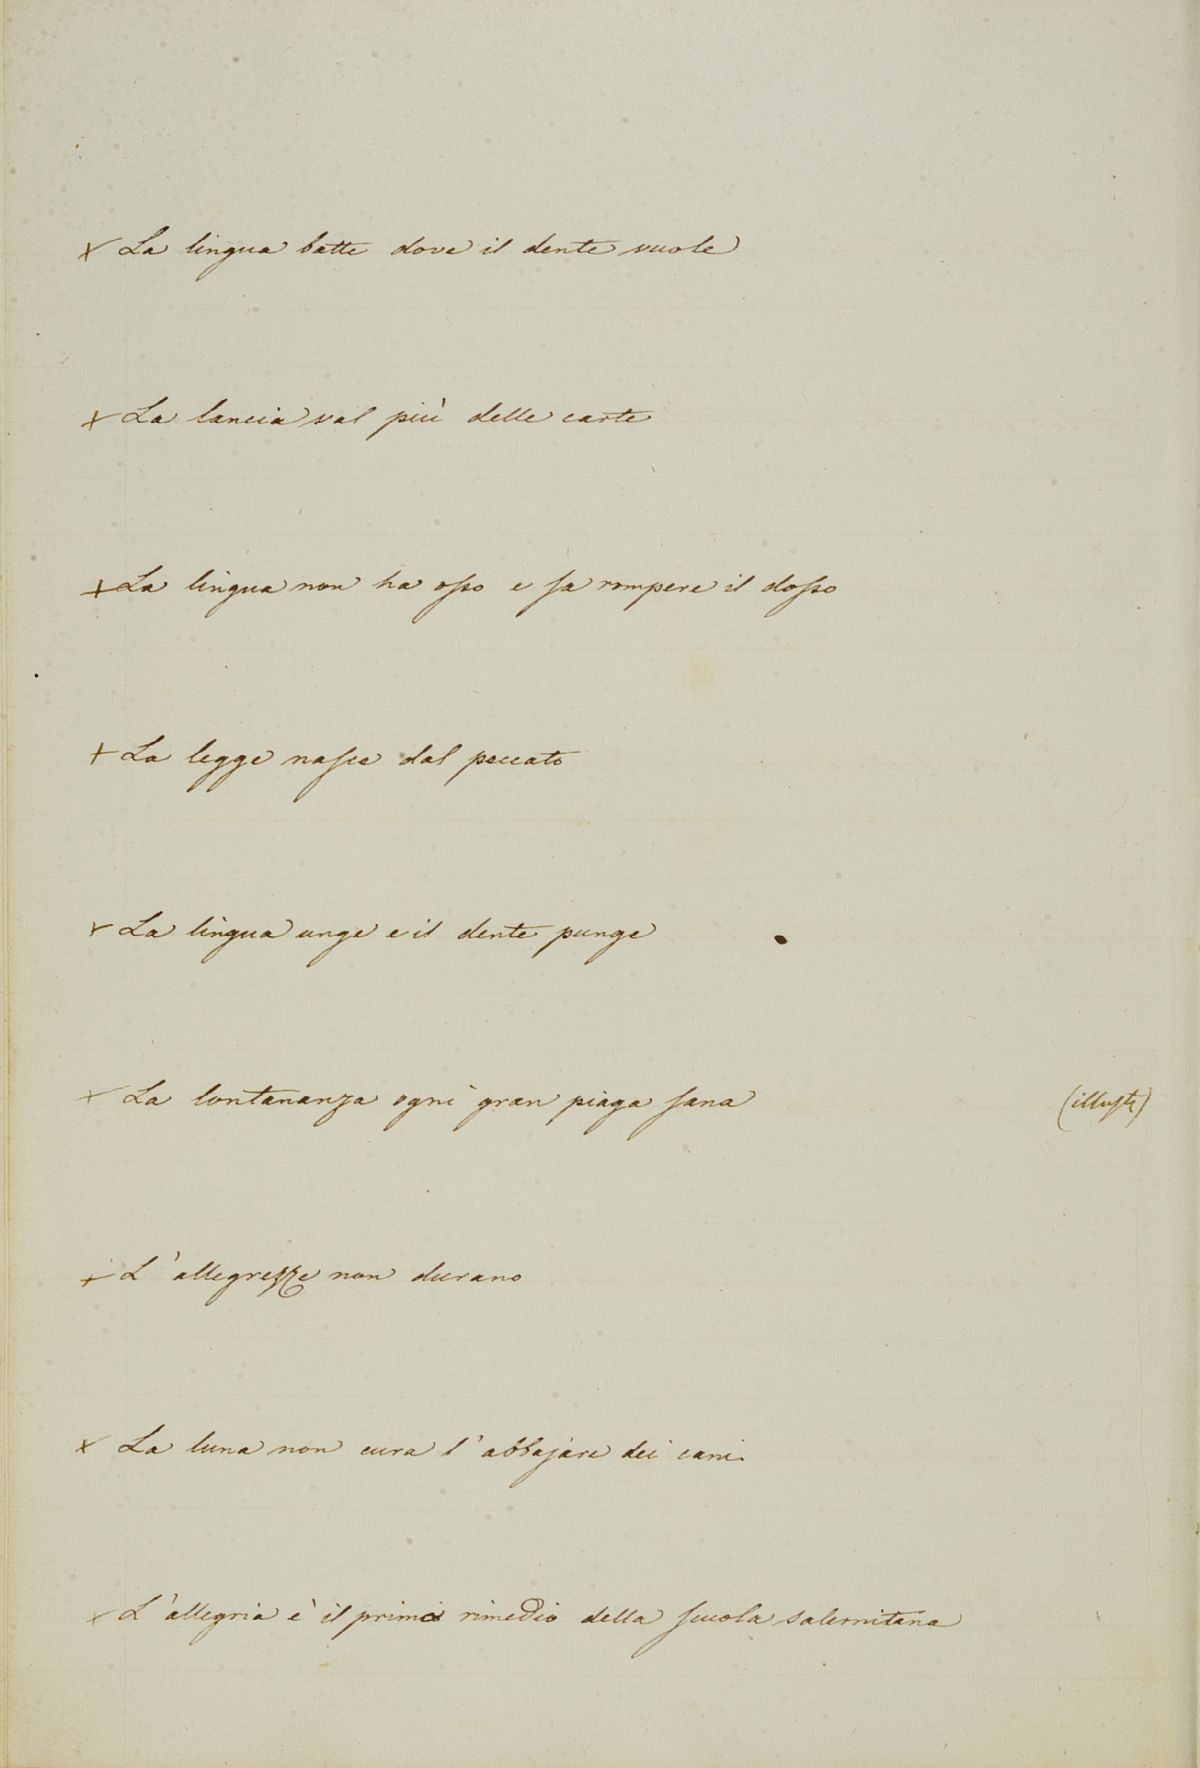 + La lingua batte dove il dente vuole
+ La lancia val più delle carte
+ La lingua non ha osso e fa rompere il dosso
+ La legge nasce dal peccato
+ La lingua unge e il dente punge
+ La lontananza ogni gran piaga sana (illustr)
+ L'allegrezze non durano
+ La luna non cura l'abbajare dei cani.
+ L'allegria è il primo rimedio della scuola salernitana